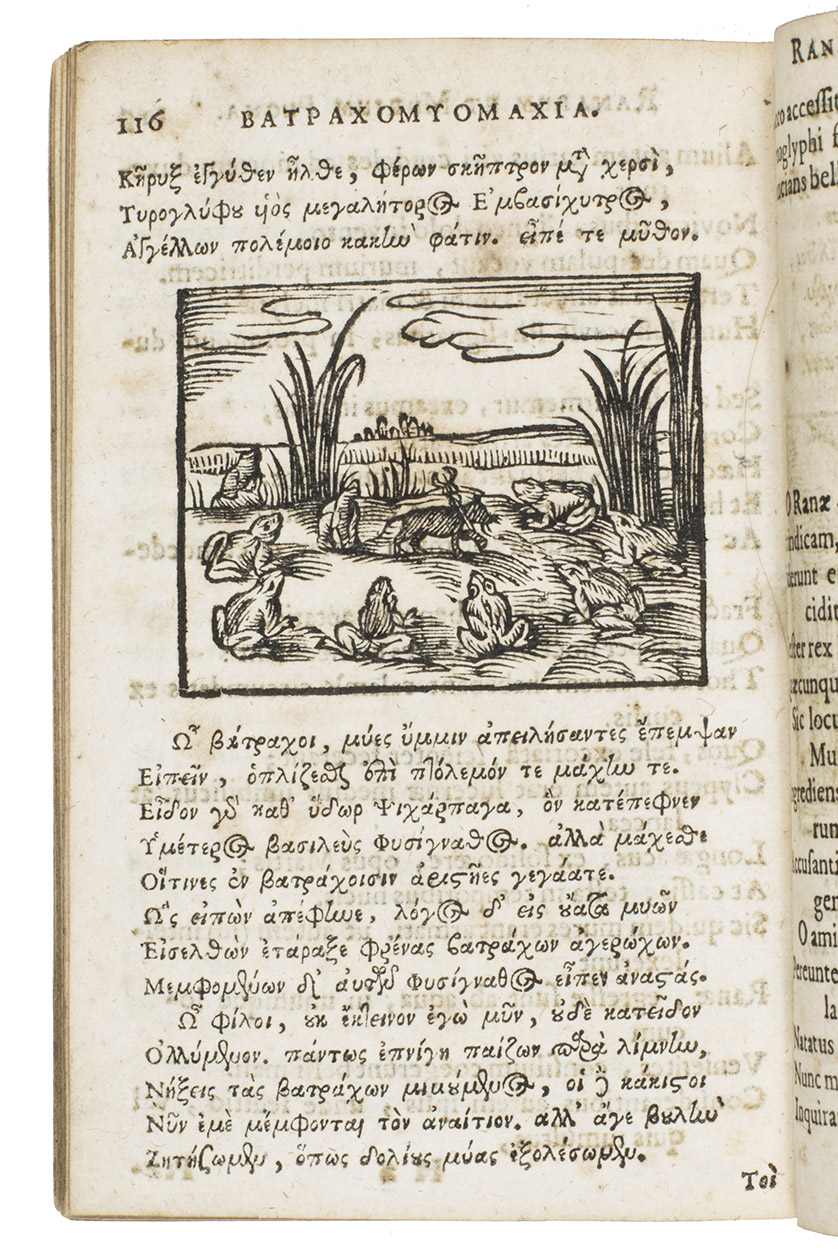 116 ΒΑΤΡΑΧΟΜΥΟΜΑΧΙΑ.
Κῆρυξ ἐγγύθεν ἦλθε, φέρων σκῆπτρον μετὰ χερσὶ,
Τυρογλύφου υἱὸς μεγαλήτορος Ἐμβασίχυτρος,
Ἀγγέλλων πολέμοιο κακὴν φάτιν. εἶπέ τε μῦθον.
Ὦ βάτραχοι, μύες ὔμμιν ἀπειλήσαντες ἔπεμψαν
Εἰπεῖν, ὁπλίζεσθαι ἐπὶ πτόλεμόν τε μάχην τε.
Εἶδον γὰρ καθ' ὕδωρ Ψιχάρπαγα, ὃν κατέπεφνεν
Ὑμέτερος βασιλεὺς Φυσίγναθος. ἀλλὰ μάχεσθε
Οἵτινες ἐν βατράχοισιν ἀριστῆες γεγάατε.
Ὣς εἰπὼν ἀπέφηνε, λόγος δ' εἰς οὔατα μυῶν
Εἰσελθὼν ἐτάραξε φρένας βατράχων ἀγερώχων.
Μεμφομένων δ' αὐτῶν Φυσίγναθος εἶπεν ἀναστάς.
Ὦ φίλοι, οὐκ ἔκτεινον ἐγὼ μῦν, οὐδὲ κατεῖδον
Ὀλλύμενον. πάντως ἐπνίγη παίζων παρὰ λίμνην,
Νήξεις τὰς βατράχων μιμούμενος, οἱ δὲ κάκιστοι
Νῦν ἐμὲ μέμφονται τὸν ἀναίτιον. ἀλλ' ἄγε βουλὴν
Ζητήσωμεν, ὅπως δολίους μύας ἐξολέσωμεν.
Τοὶ
RAN
accessit
O Ranæ
indicam,
rex
Sic locu
Mu
O ami
Natatus
Nunc m
Inquira